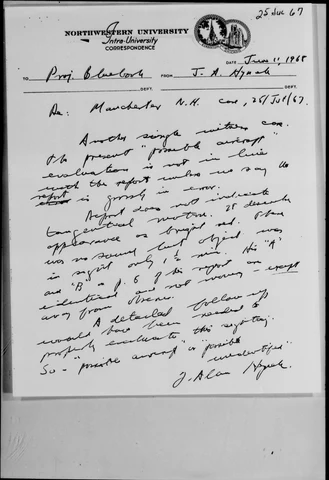 25 Jul 67
NORTHWESTERN UNIVERSITY
Intra-University
CORRESPONDENCE
DATE June 11, 1968
TO Proj. Bluebook FROM J. A. Hynek
DEPT. DEPT.
Re: Manchester N.H. case, 25/Jul/67.
Another single witness case.
The present "possible aircraft"
evaluation is not in line
with the report unless we say the
report is grossly in error.
Report does not indicate
tangential motion. It describes
appearance as bright red. There
was no sound but object was
in sight only 1½ min. His "A"
and "B" on p. 6 of his report are
identical and not moving – except
away from observer.
A detailed follow up
would have been needed to
properly evaluate this sighting.
So – "possible aircraft" or "possible
unidentified".
J. Allen Hynek.